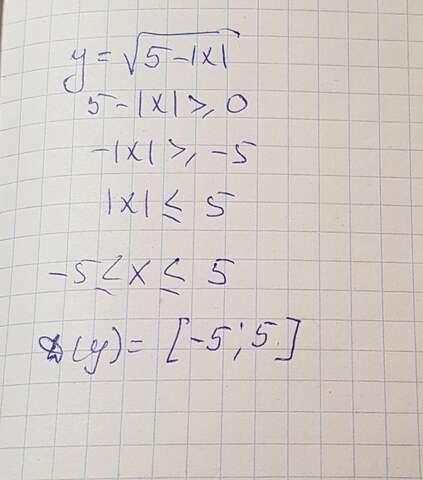 y = √5-|x|
5-|x| ⩾ 0
-|x| ⩾ -5
|x| ≤ 5
-5 ≤ x ≤ 5
D(y) = [-5; 5]